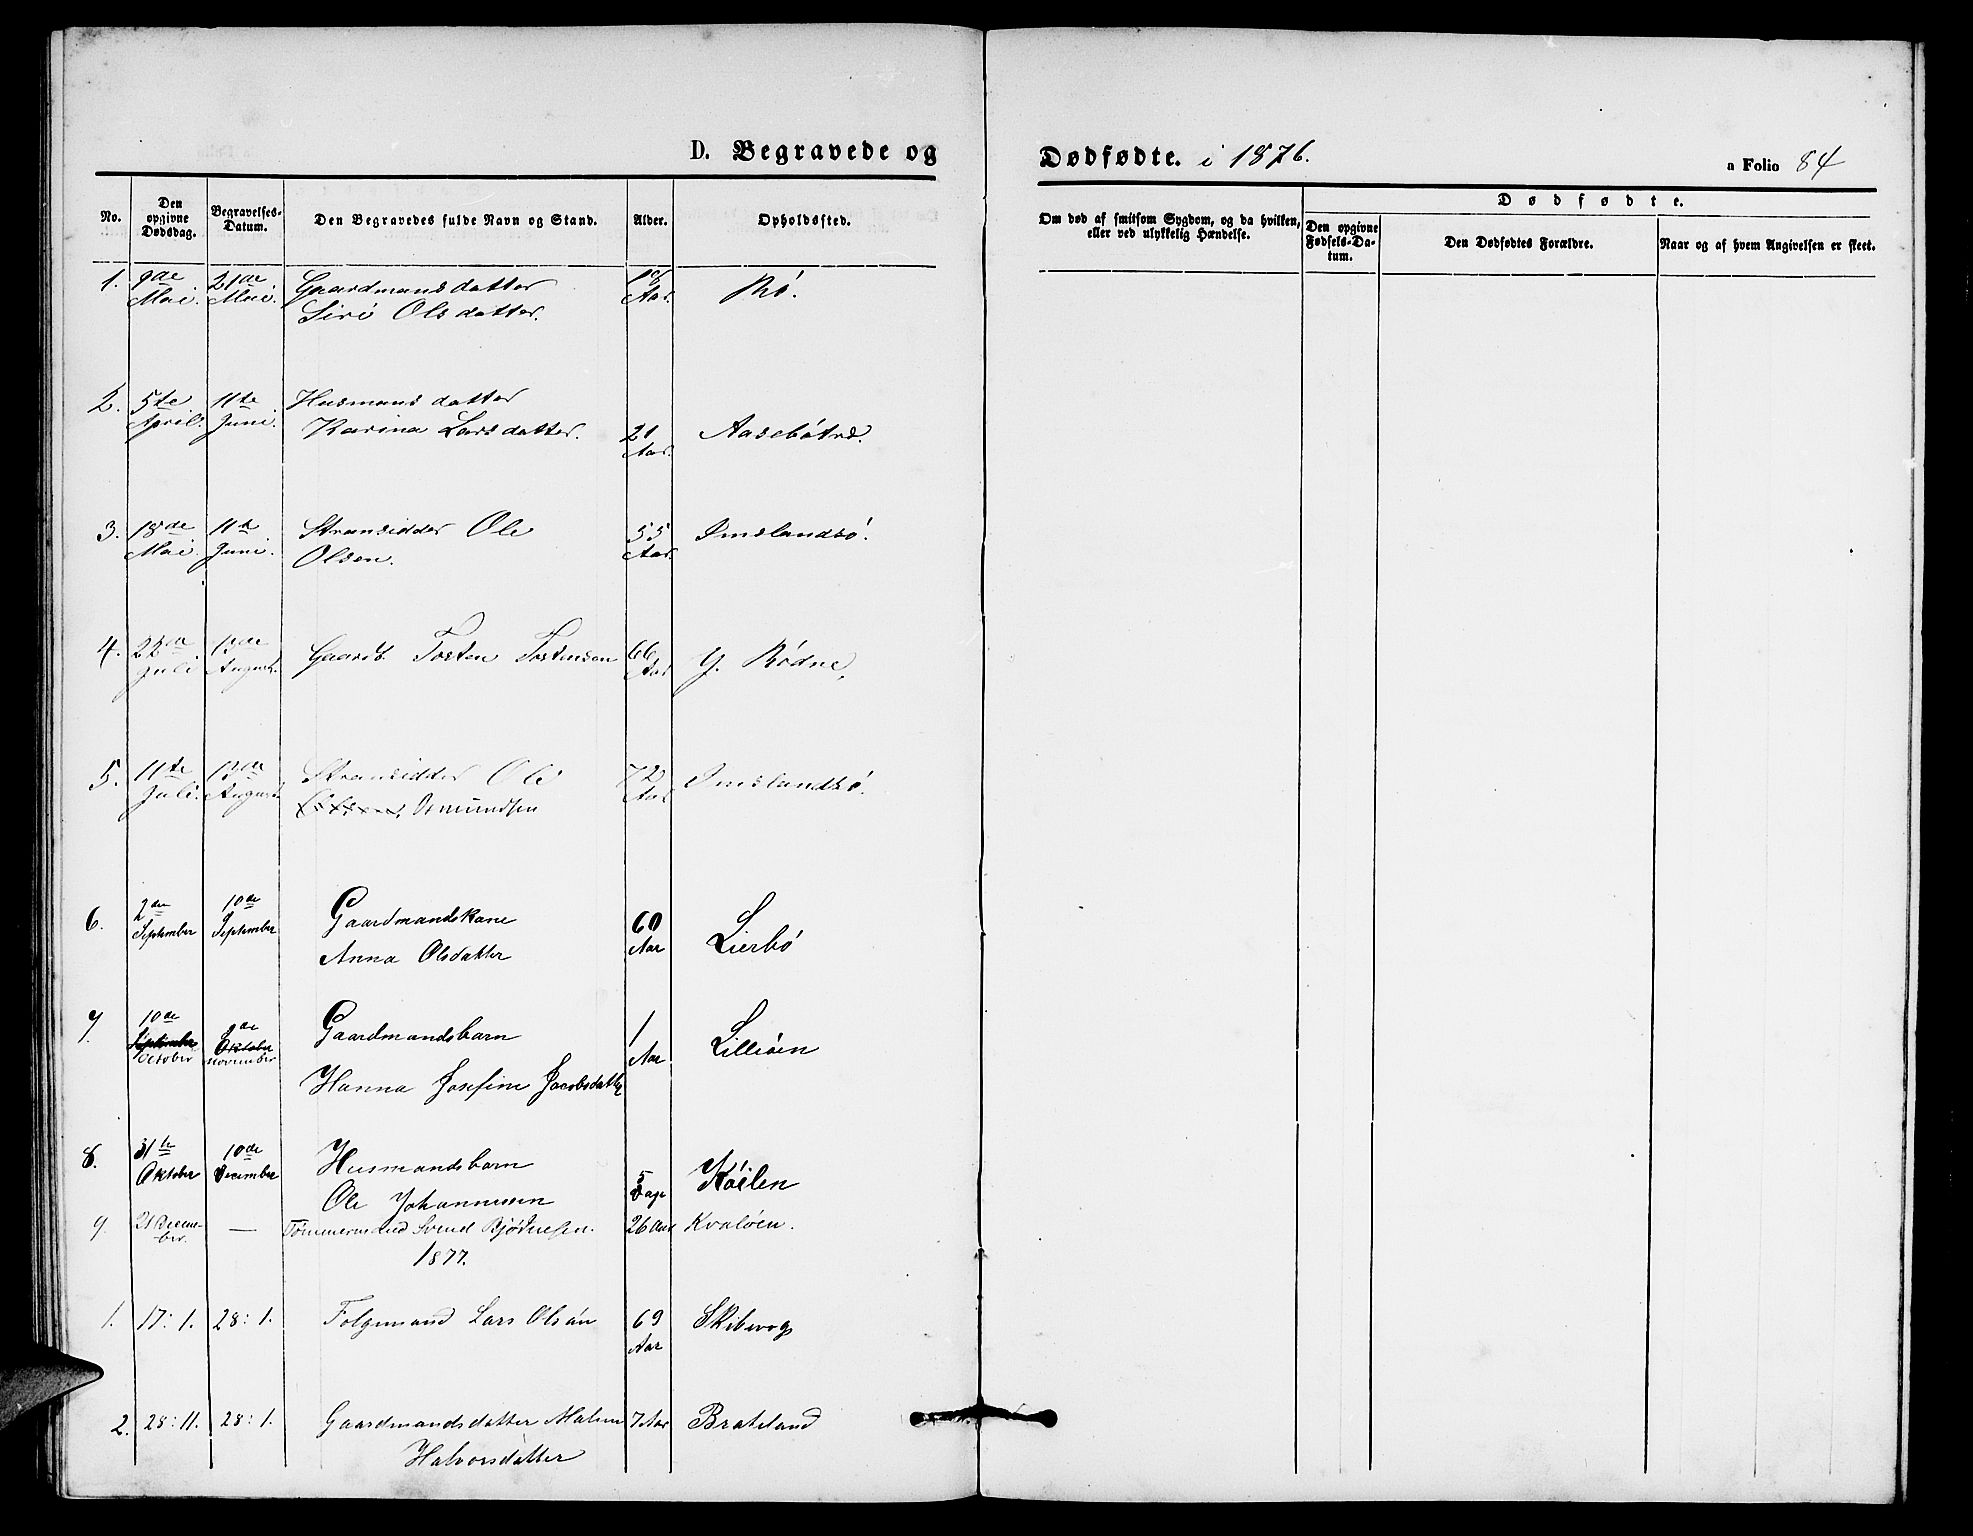 D. Begravede og Dødfødte. i 1876.
a Folio 84
No.
Den opgivne Dødsdag.
Begravelses-Datum.
Den Begravedes fulde Navn og Stand.
Alder.
Opholdssted.
Om død af smitsom Sygdom, og da hvilken, eller ved ulykkelig Hændelse.
Dødfødte.
Den opgivne Fødsels-Datum.
Den Dødfødtes Forældre.
Naar og af hvem Angivelsen er skeet.
1. 9de 21de Gaardmandsdatter
Mai. Mai. Siri Olsdatter. Aar. Rø.
2. 5te 11te Husmandsdatter
April. Juni. Karina Larsdatter. 21 Aasebøtræ.
Aar.
3. 18de 11te Stransidder Ole 55 Imslandsø.
Mai. Juni. Olsen. Aar.
4. 22de 13de Gaardb. Tosten Tostensen 66 Y. Rødne,
Juli August. Aar
5. 11te 13de Stransidder Ole 72 Imslandsø.
Juli. August. Osmundsen Aar
6. 2de 10de Gaardmandskone 60
September September Anna Olsdatter Aar Lierbø
7. 10de de Gaardmandsbarn 1 Lilliøen
September Oktober
October november Aar
Hanna Josefine Jacobsdatter
8. 31te 10de Husmandsbarn 5 Køilen
Oktober December Ole Johannessen Dage
9. 21 Decem- — Tømmermand Svend Bjørnesen. 26 Aar Kvaløen.
ber.
1877.
1. 17:1. 28:1. Folgemand Lars Olsøn 69 Skibevog
Aar
2. 28:11. 28:1. Gaardmandsdatter Malene 7 Aar Brateland
Halvorsdatter